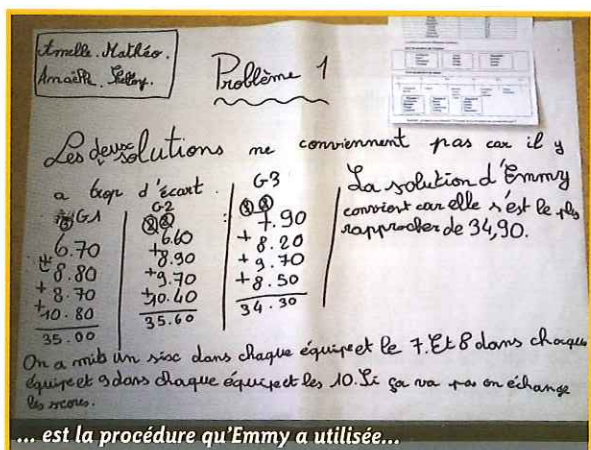 Amelle. Mathéo.
Anaëlle.
Problème 1
Les deux solutions ne conviennent pas car il y
a trop d'écart.
G1
6.70
+ 8.80
+ 8.70
+ 10.80
35.00
G2
6.60
+ 8.90
+ 9.70
+ 10.40
35.60
G3
7.90
+ 8.20
+ 9.70
+ 8.50
34.30
La solution d'Emmy
convient car elle s'est le plus
rapprocher de 34,90.
On a mib un sisc dans chaque équipe et le 7. Et 8 dans chaque
équipe et 9 dans chaque équipe et les 10. Si ça va pas on échange
les scores.
... est la procédure qu'Emmy a utilisée...